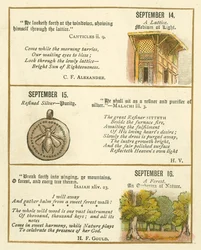 "He looketh forth at the windows, shewing
himself through the lattice."
CANTICLES ii. 9.
Come while the morning tarries,
Our waiting eyes to bless;
Look through the lowly lattice—
Bright Sun of Righteousness.
C. F. ALEXANDER.
SEPTEMBER 14.
A Lattice.
SEPTEMBER 15.
Refined Silver—Purity.
"He shall sit as a refiner and purifier of
silver."—MALACHI iii. 3.
The great Refiner
Beside the furnace fire,
Awaiting the fulfilment
Of His loving heart's desire;
Slowly the dross is purged away,
The lustre groweth bright,
And the fair polished surface
Reflecteth Heaven's own light
H. V.
"Break forth into singing, ye mountains,
O forest, and every tree therein."
ISAIAH xliv. 23.
I will away
And gather balm from a sweet forest walk!
The whole wild wood is one vast instrument
Of thousand, thousand keys; and all its
notes
Come in sweet harmony, while Nature plays
To celebrate the presence of her God.
H. F. GOULD.
SEPTEMBER 16.
A Forest.
The Orchestra of Nature.